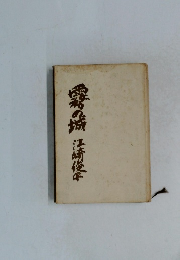 霧の城
江崎俊平